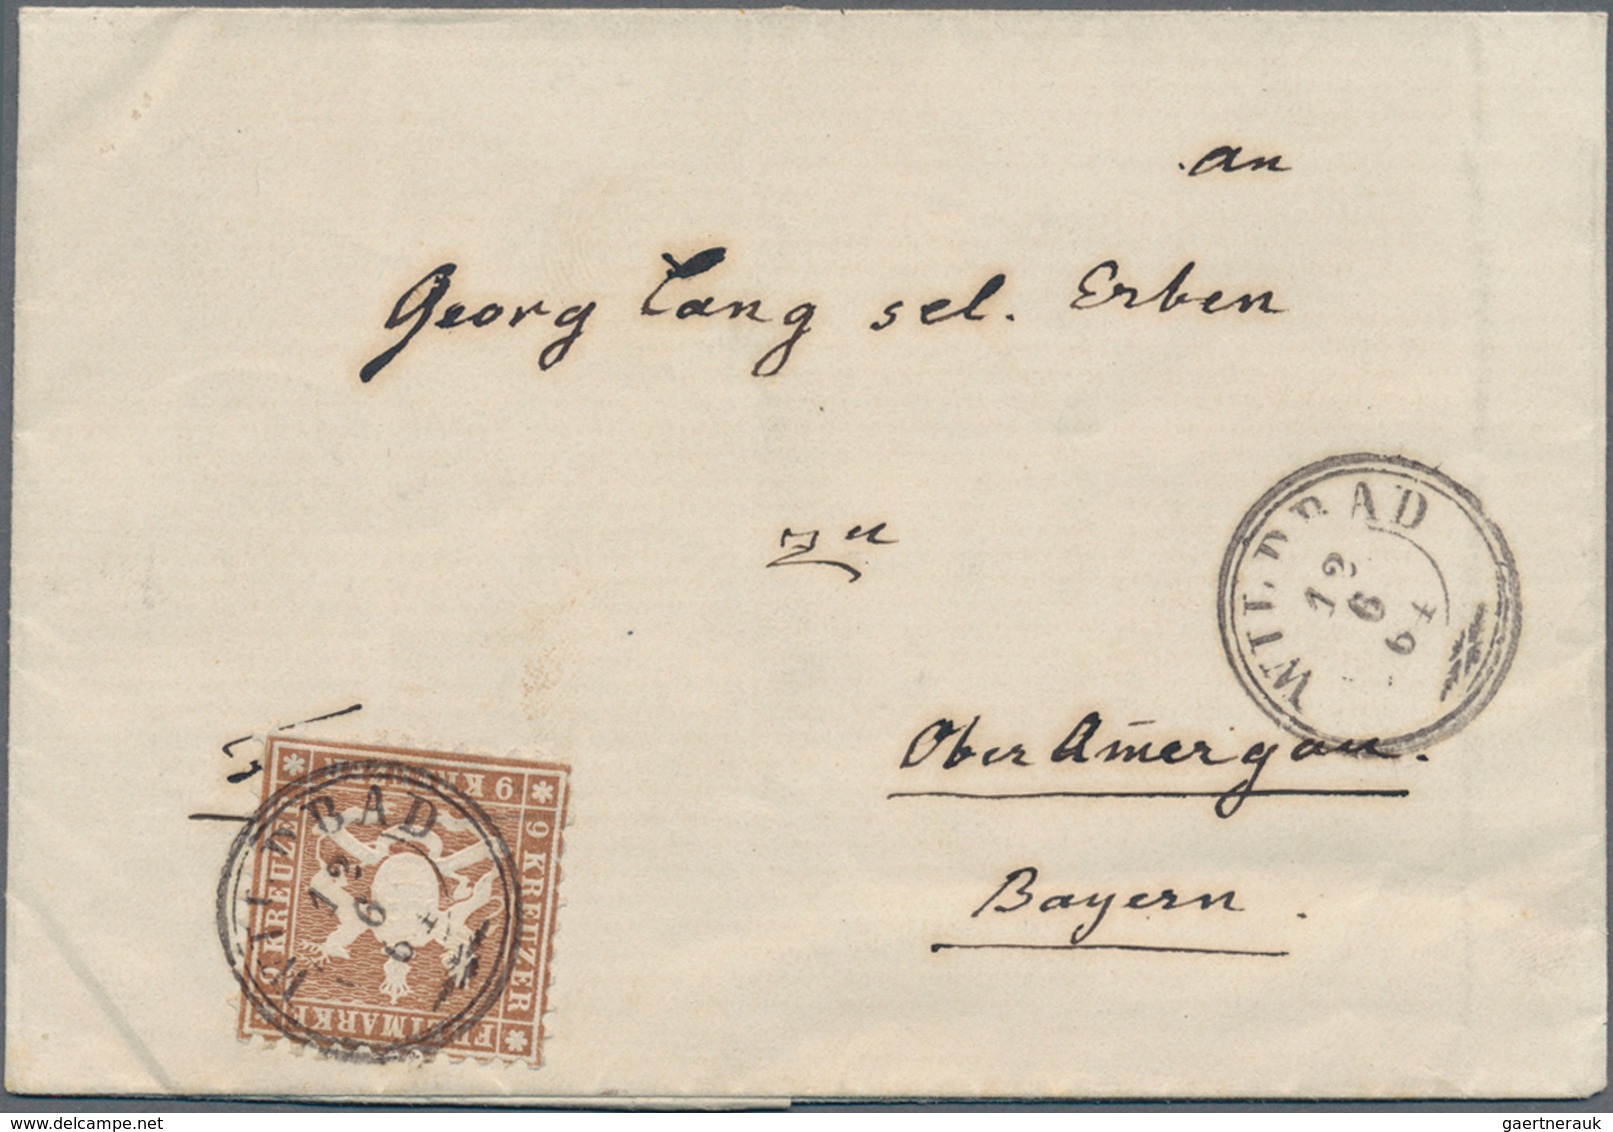 an
Georg Lang sel. Erben
zu
WILDBAD
12
6
64
Ober Am̅ergau.
Bayern.
9 KREUZER
9 KREUZER
9 KREUZER
FREIMARKE
WILDBAD
12
6
64
delcampe.net
gaertnerauk